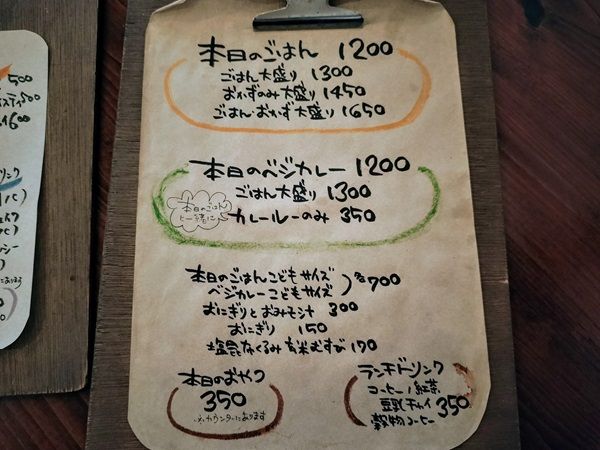 本日のごはん 1200
ごはん大盛り 1300
おかずのみ大盛り 1450
ごはん・おかず大盛り 1650
本日のベジカレー 1200
ごはん大盛り 1300
本日のごはん
と一緒に
カレールーのみ 350
本日のごはんこどもサイズ
ベジカレーこどもサイズ
各700
おにぎりとおみそ汁 300
おにぎり 150
塩昆布くるみ玄米むすび 170
本日のおやつ
350
カウンターにあります
ランチドリンク
コーヒー/紅茶
豆乳チャイ 350
穀物コーヒー
500
600